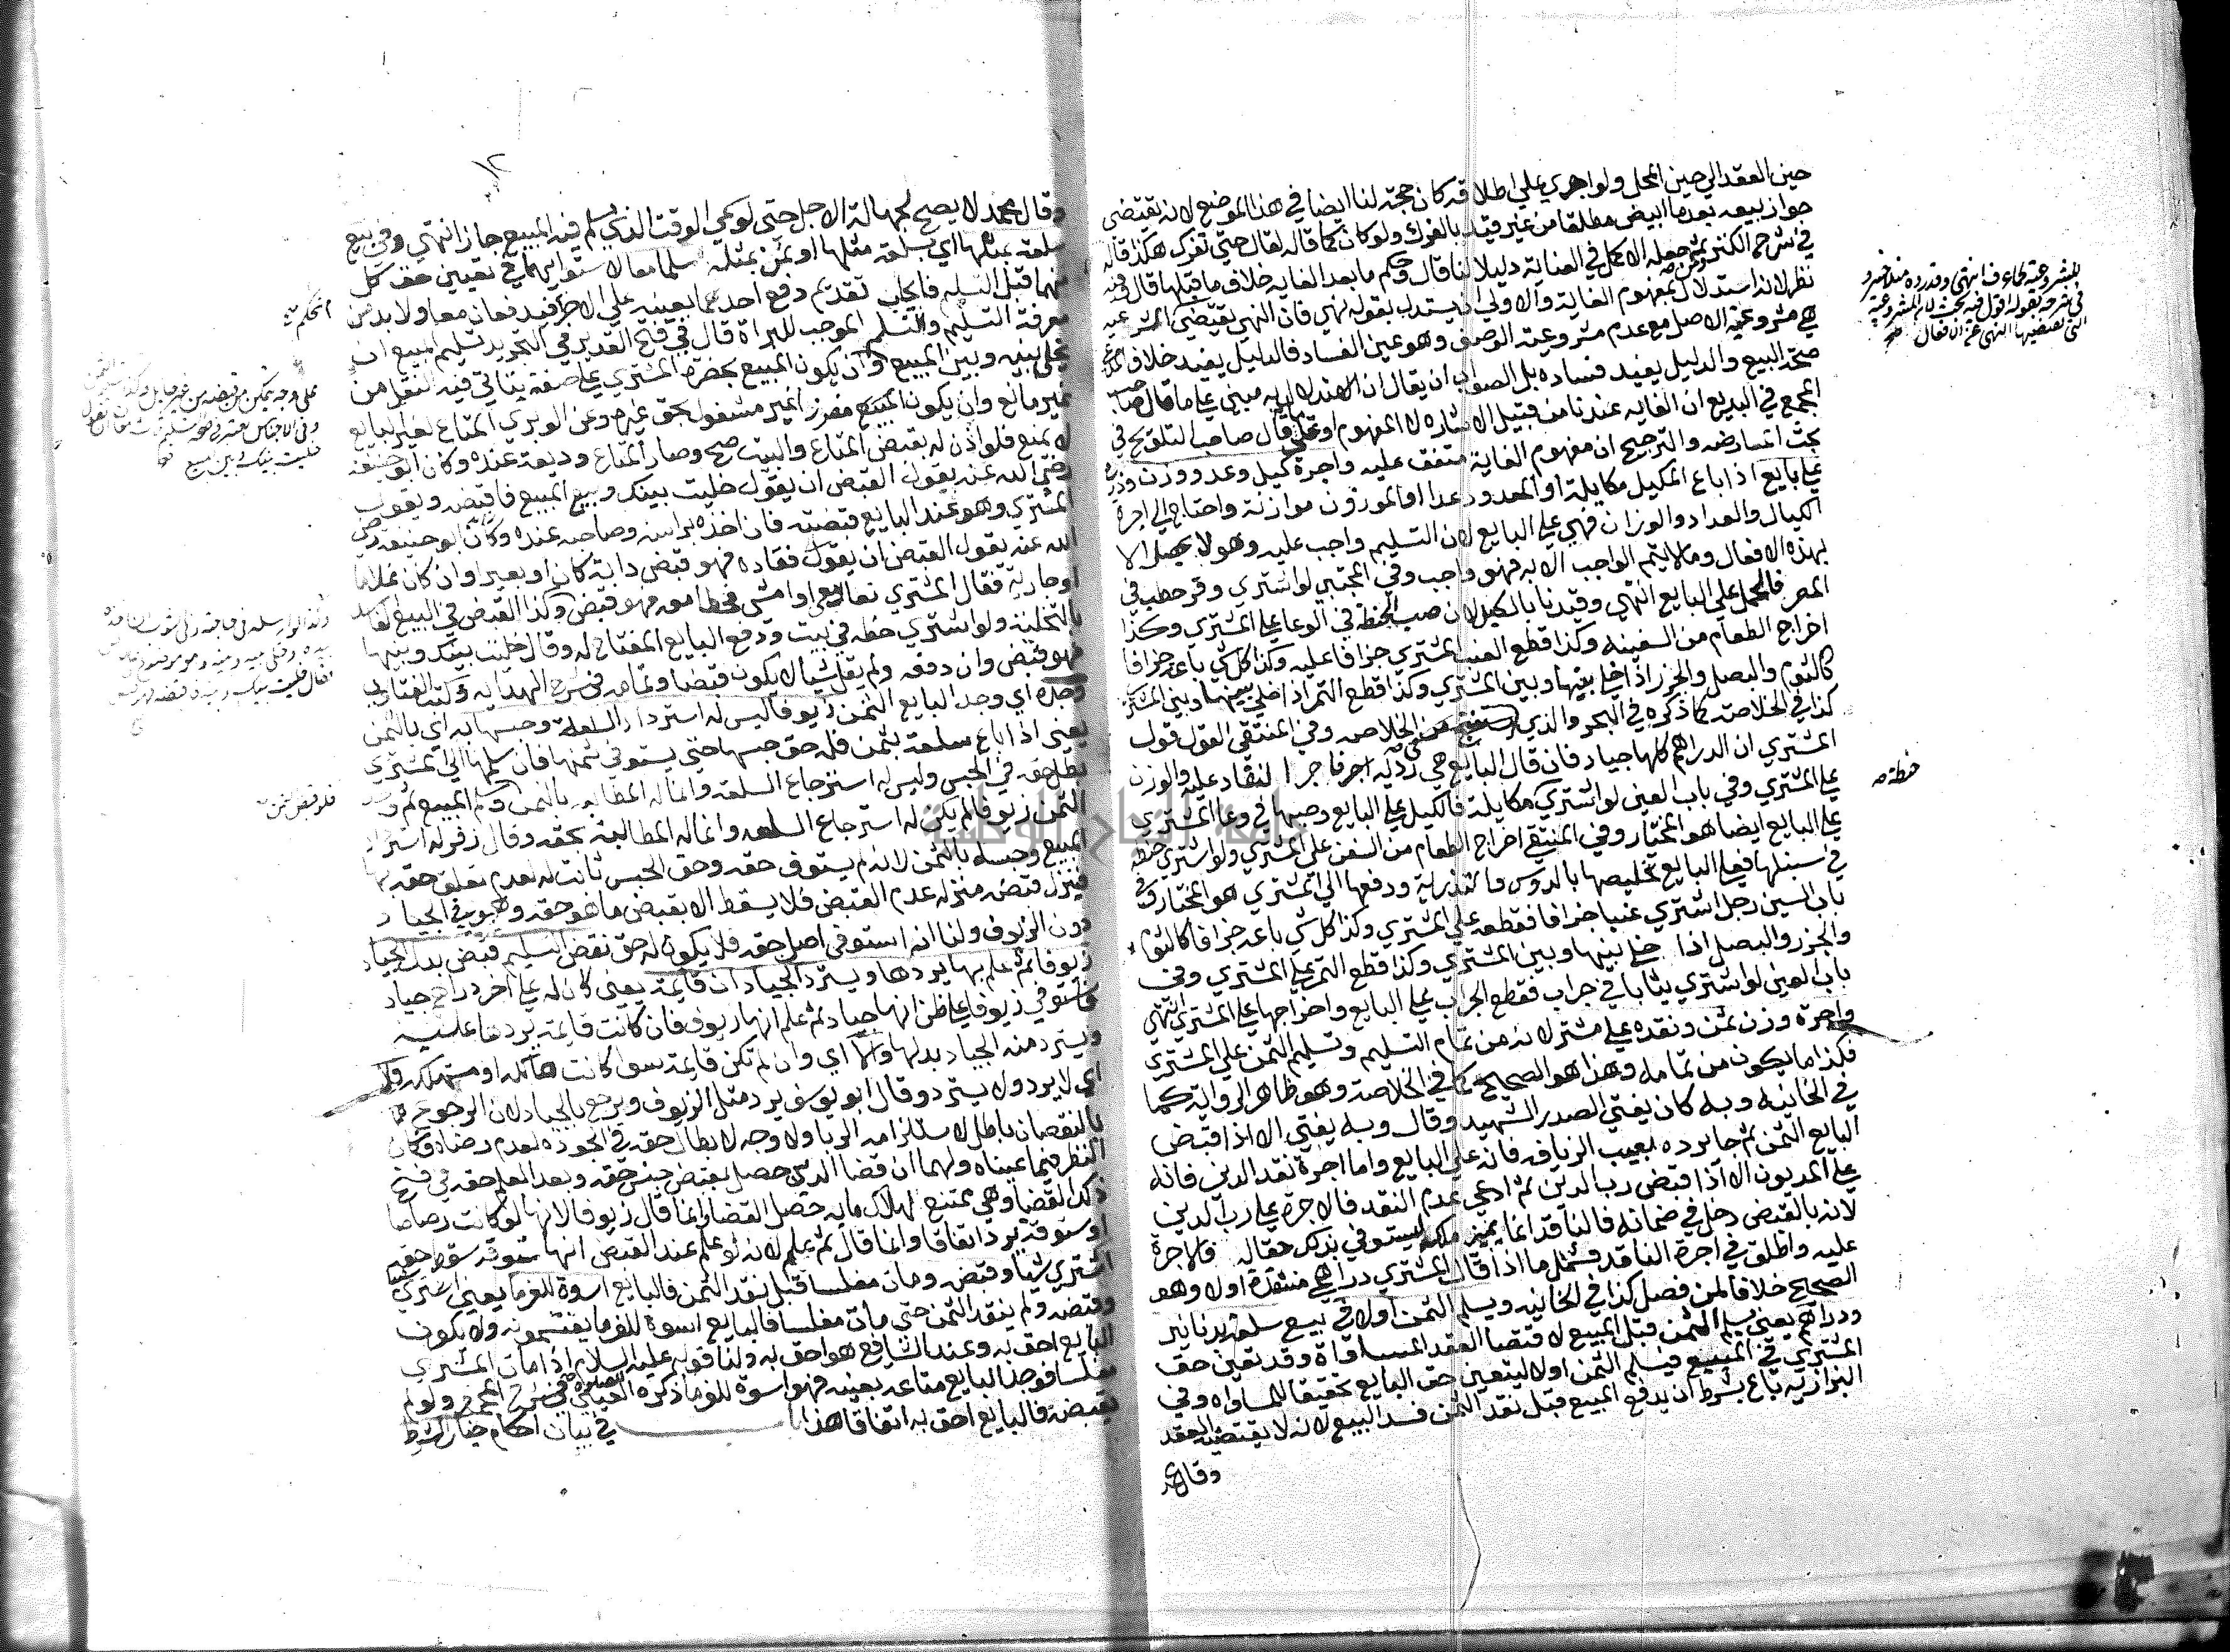 حين العقد الي حين المحل ولو اجري علي اطلاقه كان حجة لنا ايضا في هذا الموضع لانه يقتضي
جواز بيعه بعد ما ابيض مطلقا من غير قيد بالفرك ولو كان كما قاله لقال حتي تفرك هكذا قاله
في شرح الكنز ثم جعله الاكمل في العناية دليلا لنا قال وحكم ما بعد الغاية خلاف ما قبلها قال وفيه
نظر لانه استدلال بمفهوم الغاية والاولي ان يستدل بقوله نهي فان النهي يقتضي المشروعية
هي مشروعية الاصل مع عدم مشروعية الوصف وهو عين الفساد فالدليل يفيد خلاف المدعي
صحة البيع والدليل يفيد فساده بل الصواب ان يقال ان الاستدلال به مبني علي ما قال صاحب
المجمع في البديع ان الغاية عندنا من قبيل الاشارة لا المفهوم او علي ما قال صاحب التلويح في
بحث المعارضة والترجيح ان مفهوم الغاية متفق عليه واجرة كيل وعد ووزن وذرع
علي بايع اذا باع المكيل مكايلة او المعدود عدا او الموزون موازنة واحتاج الي اجرة
الكيال والعداد والوزان فهي علي البايع لان التسليم واجب عليه وهو لا يحصل الا
بهذه الافعال وما لا يتم الواجب الا به فهو واجب وفي المجتبي لو اشتري وقر حطب في
المصر فالحمل علي البايع انتهي وقيدنا بالكيل لان صب الحنطة في الوعا علي المشتري وكذا
اخراج الطعام من السفينة وكذا قطع العنب المشتري جزافا عليه وكذا كل شي باعه جزافا
كالثوم والبصل والجزر اذا خلي بينها وبين المشتري وكذا قطع الثمر اذا خلي بينها وبين المشتري
كذا في الخلاصة كما ذكره في البحر والذي الخلاصه وفي المنتقي القول قول
المشتري ان الدراهم كلها جياد فان قال البايع هي ردية اجر فاجر النقاد عليه والوزن
علي المشتري وفي باب العين لو اشتري مكايلة فالكيل علي البايع وصبها في وعا المشتري
علي البايع ايضا هو المختار وفي المنتقي اخراج الطعام من السفن علي المشتري ولو اشتري حنطة
في سنبلها فعلي البايع تخليصها بالدوس والتذرية ودفعها الي المشتري هو المختار وفي
باب السين رجل اشتري عنبا جزافا فقطعه علي المشتري وكذا كل شي باعه جزافا كالثوم
والجزر والبصل اذا خلي بينها وبين المشتري وكذا قطع الثمر علي المشتري وفي
باب العين لو اشتري ثيابا في جراب فقطع الجراب علي البايع واخراجها علي المشتري انتهي
واجرة وزن ثمن ونقده علي مشتر لانه من تمام التسليم وتسليم الثمن علي المشتري
فكذا ما يكون من تمامه وهذا هو الصحيح كما في الخلاصة وهو ظاهر الرواية كما
في الخانية وبه كان يفتي الصدر الشهيد وقال وبه يفتي الا اذا قبض
البايع الثمن ثم جا يرده بعيب الزيافه فانه علي البايع واما اجرة نقد الدين فانه
علي المديون الا اذا قبض رب الدين ثم ادعي عدم النقد فالاجرة علي رب الدين
لانه بالقبض دخل في ضمانه فالناقد انما يميز ملكه ليستوفي بذلك حقا له فالاجرة
عليه واطلق في اجرة الناقد فشمل ما اذا قال المشتري دراهمي منتقدة اولا وهو
الصحيح خلافا لمن فصل كذا في الخانيه ويسلم الثمن اولا في بيع سلعة بدنانير
ودراهم يعني يسلم الثمن قبل المبيع لاقتضا العقد المساواة وقد تعين حق
المشتري في المبيع فيسلم الثمن اولا ليتعين حق البايع تحقيقا للمساواه وفي
البزازية باع بشرط ان يدفع المبيع قبل نقد الثمن فسد البيع لانه لا يقتضيه العقد
وقال محمد
للمشروعية
في شرحه بقوله اقول فيه بحث لان المشروعية
التي تقتضيها النهي عن الافعال
حنطة صح
١٢
وقال محمد لا يصح لجهالة الاجل حتي لو سمي الوقت الذي يسلم فيه المبيع جاز انتهي وفي بيع
سلعة بمثلها اي بسلعة مثلها او ثمن بمثله سلما معا لاستوايهما في تعيين حق كل
منهما قبل التسليم فايجاب تقديم دفع احدهما بعينه علي الاخر فيدفعان معا ولا بد من
معرفة التسليم والتسلم الموجب للبراة قال في فتح القدير في التجريد تسليم المبيع ان
يخلي بينه وبين المبيع وان يكون المبيع بحضرة المشتري علي صفة يتاتي فيه النقل من
غير مانع وان يكون المبيع مفرزا غير مشغول بحق غيره وعن الوبري المتاع لغير البايع
لا يمنع فلو اذن له بقبض المتاع والبيت صح وصار المتاع وديعة عنده وكان ابو حنيفة
رضي الله عنه يقول القبض ان يقول خليت بينك وبين المبيع فاقبضه ويقول
المشتري وهو عند البايع قبضته فان اخذه براسه وصاحبه عنده وكان ابو حنيفة رضي
الله عنه يقول القبض ان يقول فقاده فهو قبض دابة كان او بعيرا وان كان غلاما
او جارية فقال المشتري تعال معي او امش فخطا معه فهو قبض وكذا القبض في البيع الفاسد
بالتخلية ولو اشتري حنطه في بيت ودفع البايع المفتاح له وقال خليت بينك وبينها
فهو قبض وان دفعه ولم يقل شيا لا يكون قبضا وتمامه في شرح الهداية وكتب الفتاوي
وجده اي وجد البايع الثمن زيوفا ليس له استرداد السلعة وحبسها به اي بالثمن
يعني اذا باع سلعة بثمن فله حق حبسها حتي يستوفي ثمنها فان سلمها الي المشتري
بطل حقه في الحبس وليس له استرجاع السلعة وانما له المطالبة بالثمن
الثمن زيوفا لم يكن له استرجاع السلعه وانما له المطالبة بحقه وقال زفر له استرداد
المبيع وحبسه بالثمن لانه لم يستوف حقه وحق الحبس ثابت له لعدم تعلق حقه بها
فينزل قبضه منزله عدم القبض فلا يسقط الا بقبض ما هو حقه وهو في الجياد
دون الزيوف ولنا انه استوفي اصل حقه فلا يكون له حق نقض التسليم قبض بدل الجياد
زيوفا ثم علم بها يردها ويسترد الجياد ان قايمة يعني كان له علي اخر دراهم جياد
فاستوفي زيوفا علي ظن انها جياد ثم علم انها زيوف فان كانت قايمة يردها عليه
ويسترد منه الجياد بدلها والا اي وان لم تكن قايمة سوا كانت هالكه او مستهلكه فلا
اي لا يرد ولا يسترد وقال ابو يوسف يرد مثل الزيوف ويرجع بالجياد لان الرجوع
بالنقصان باطل لاستلزامه الربا ولا وجه لابطال حقه في الجوده لعدم رضاه فكان
النظر فيما عيناه ولهما ان قضا الدين حصل بقبض جنس حقه وبعد المعلي حقه في فسخ
ذلك القضا وهي ممتنع لهلاك ما به حصل القضا وانما قال زيوفا لانها لو كانت رصاصا
او ستوقة يرد اتفاقا وانما قال ثم علم لانه لو علم عند القبض انها ستوقه سقط حقه
اشتري شيا وقبضه ومات مفلسا قبل نقد الثمن فالبايع اسوة للغرما يعني اشتري شيا
وقبضه ولم ينقد الثمن حتي مات مفلسا فالبايع اسوة للغرما يقتسمونه ولا يكون
البايع احق به وعند الشافعي هو احق به ولنا قوله عليه السلام اذا مات المشتري
مفلسا فوجد البايع متاعه بعينه فهو اسوة للغرما ذكره العيني في شرح المجمع ولو لم
يقبضه فالبايع احق به اتفاقا هذا باب في بيان احكام خيار الشرط
فلو قبض الثمن